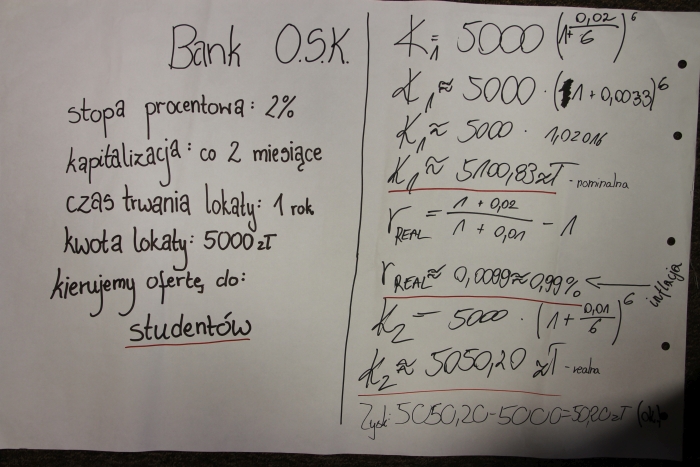 Bank O.S.K.
stopa procentowa: 2%
kapitalizacja: co 2 miesiące
czas trwania lokaty: 1 rok
kwota lokaty: 5000 zł
kierujemy ofertę do:
studentów
K₁ = 5000 (1+ 0,02/6)⁶
K₁ ≈ 5000 · (1 + 0,0033)⁶
K₁ ≈ 5000 · 1,02016
K₁ ≈ 5100,83 zł - nominalna
r REAL = 1 + 0,02 / 1 + 0,01 - 1
r REAL ≈ 0,0099 ≈ 0,99% ← inflacja
K₂ = 5000 · (1 + 0,01/6)⁶
K₂ ≈ 5050,20 zł - realna
Zysk: 5050,20-5000=50,20 zł